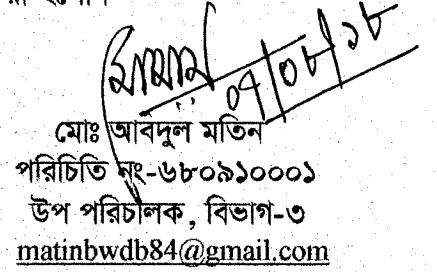 ০৭/০৮/১৮
মোঃ আবদুল মতিন
পরিচিতি নং-৬৮০৯১০০০১
উপ পরিচালক, বিভাগ-৩
matinbwdb84@gmail.com